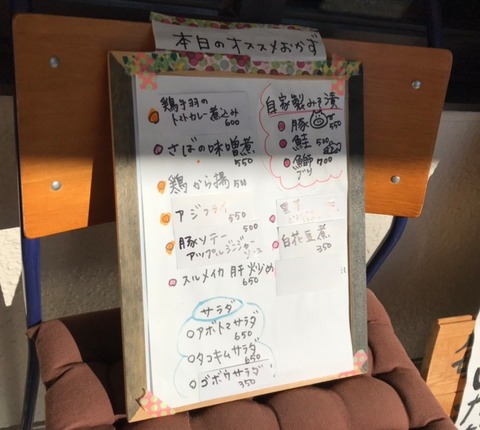 本日のオススメおかず
鶏手羽の
トマトカレー煮込み
600
さばの味噌煮
550
鶏から揚 500
アジフライ
550
豚ソテー 500
アップルジンジャー
ソース
スルメイカ肝炒め
650
自家製みそ漬
豚 550
鮭 500
鰤 700
ブリ
白花豆煮
350
サラダ
アボトマサラダ
650
タコキムサラダ
650
ゴボウサラダ
350